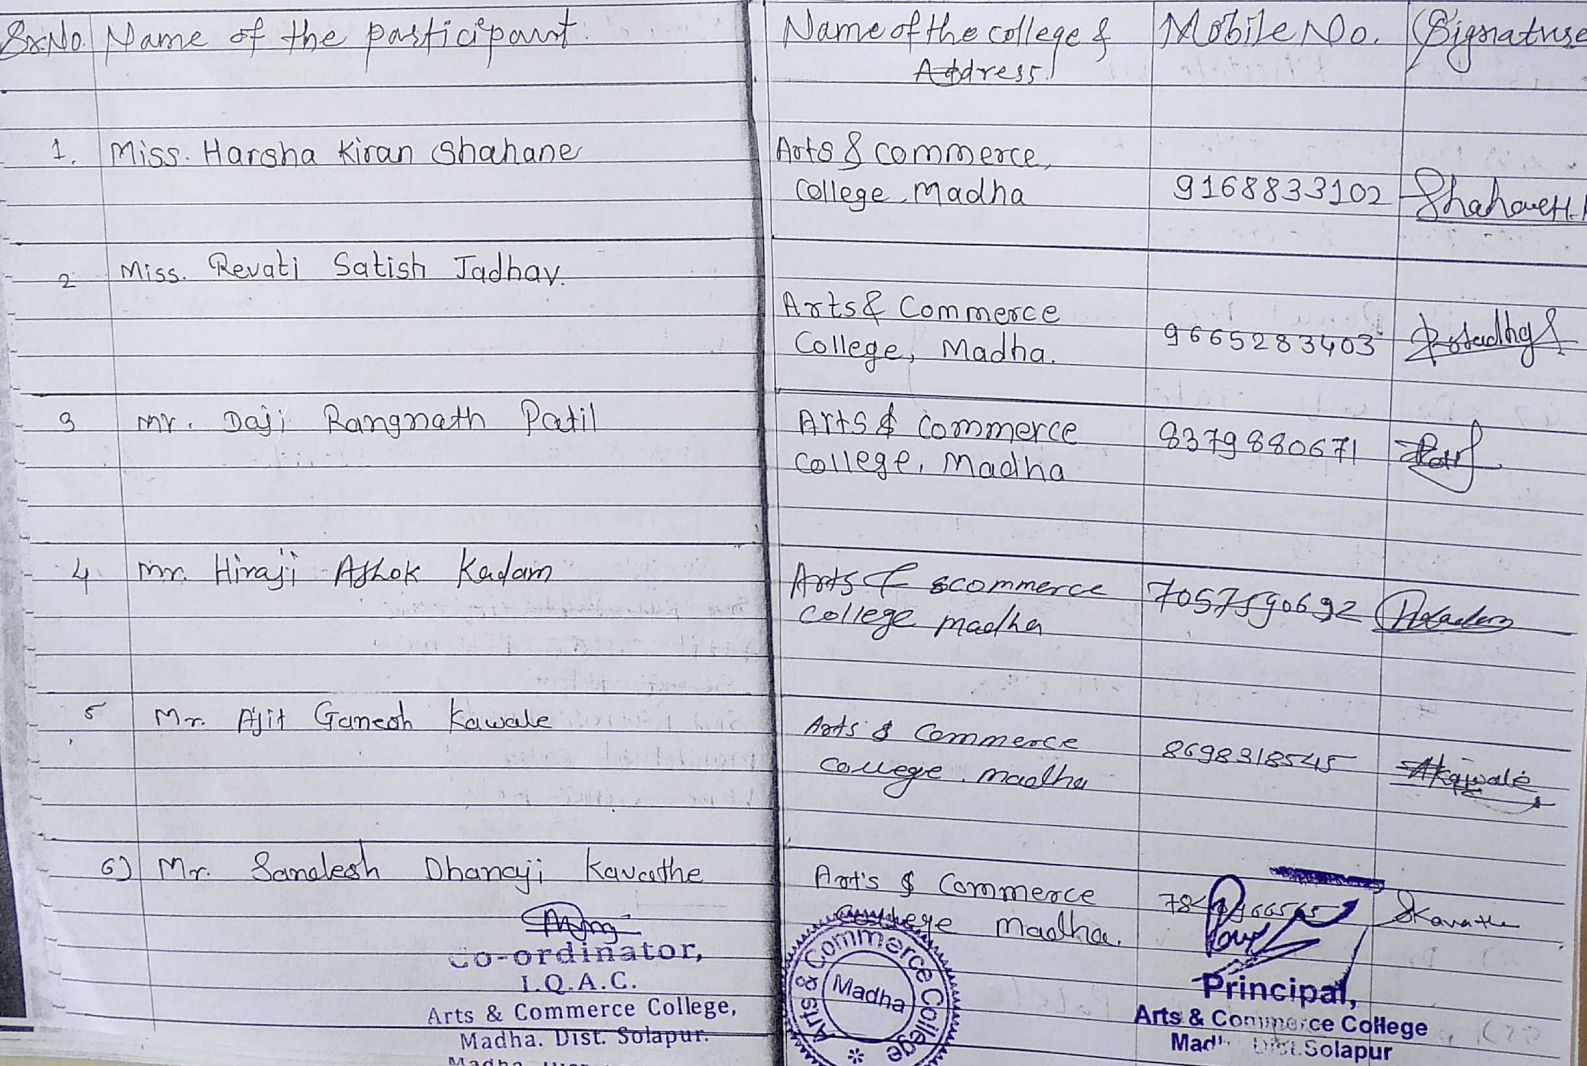 Sr.No. Name of the participant. Name of the college & Mobile No. Signature
Address.
1. Miss. Harsha Kiran Shahane Arts & commerce,
College, Madha 9168833102
2 Miss. Revati Satish Jadhav.
Arts & Commerce
College, Madha. 9665283403
3 Mr. Daji Rangnath Patil Arts & Commerce 8379880671
College, Madha
4 Mr. Hiraji Ashok Kadam Arts & commerce 7057590692
College madha
5 Mr. Ajit Ganesh Kawale Arts & Commerce 8698318545 Akawale
College, madha
6) Mr. Sandesh Dhanaji Kavathe Art's & Commerce
College Madha.
Co-ordinator,
I.Q.A.C.
Arts & Commerce College,
Madha. Dist. Solapur.
Arts & Commerce College
Madha
Principal,
Arts & Commerce College
Dist.Solapur